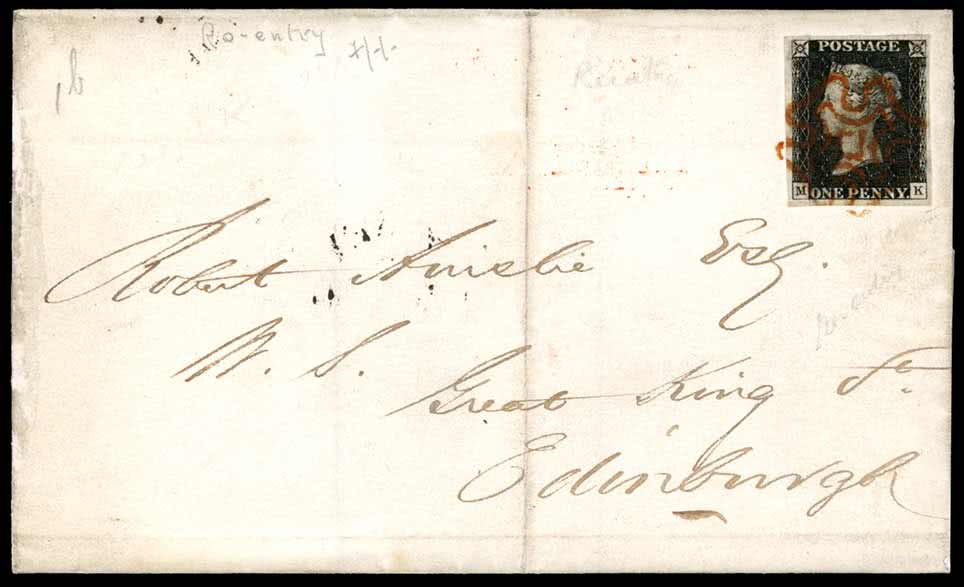 Re-entry
1b
POSTAGE
M ONE PENNY. K
Robert Ainslie Esq.
W. S.
Great King St.
Edinburgh